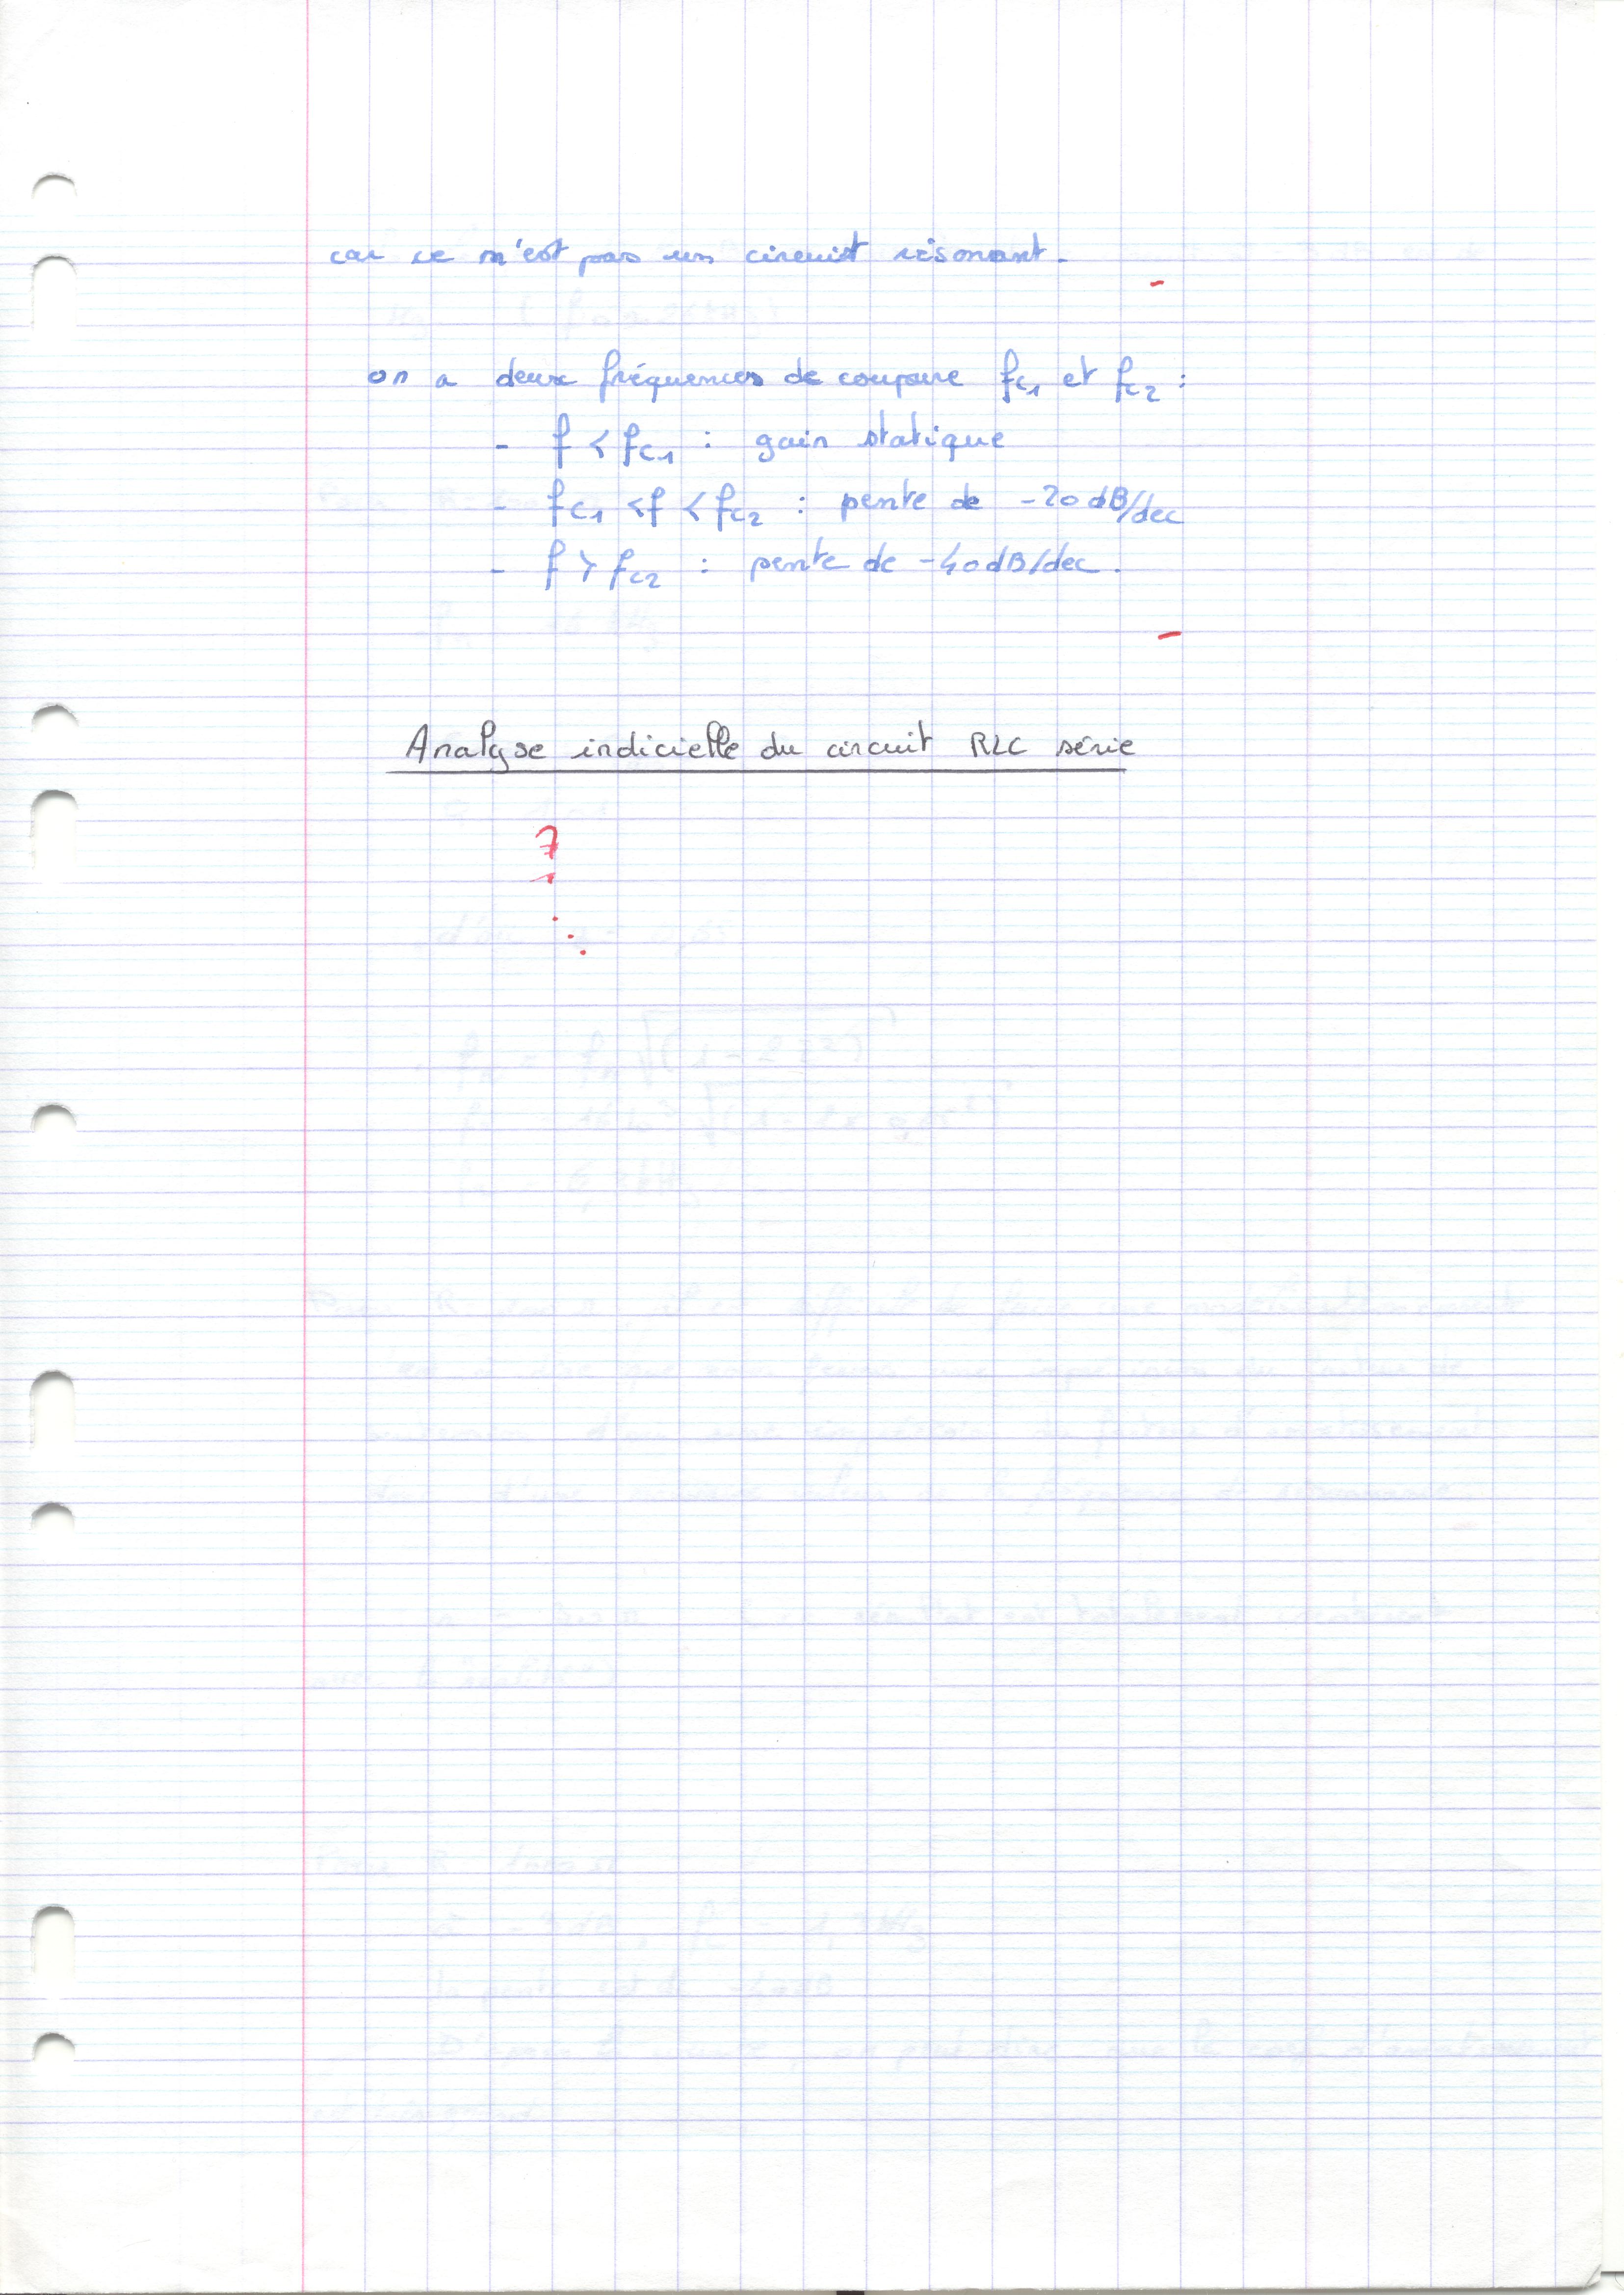 car ce n'est pas un circuit résonant.
on a deux fréquences de coupure fc1 et fc2 :
- f < fc1 : gain statique
- fc1 < f < fc2 : pente de -20 dB/dec
- f > fc2 : pente de -40 dB/dec.
Analyse indicielle du circuit RLC série